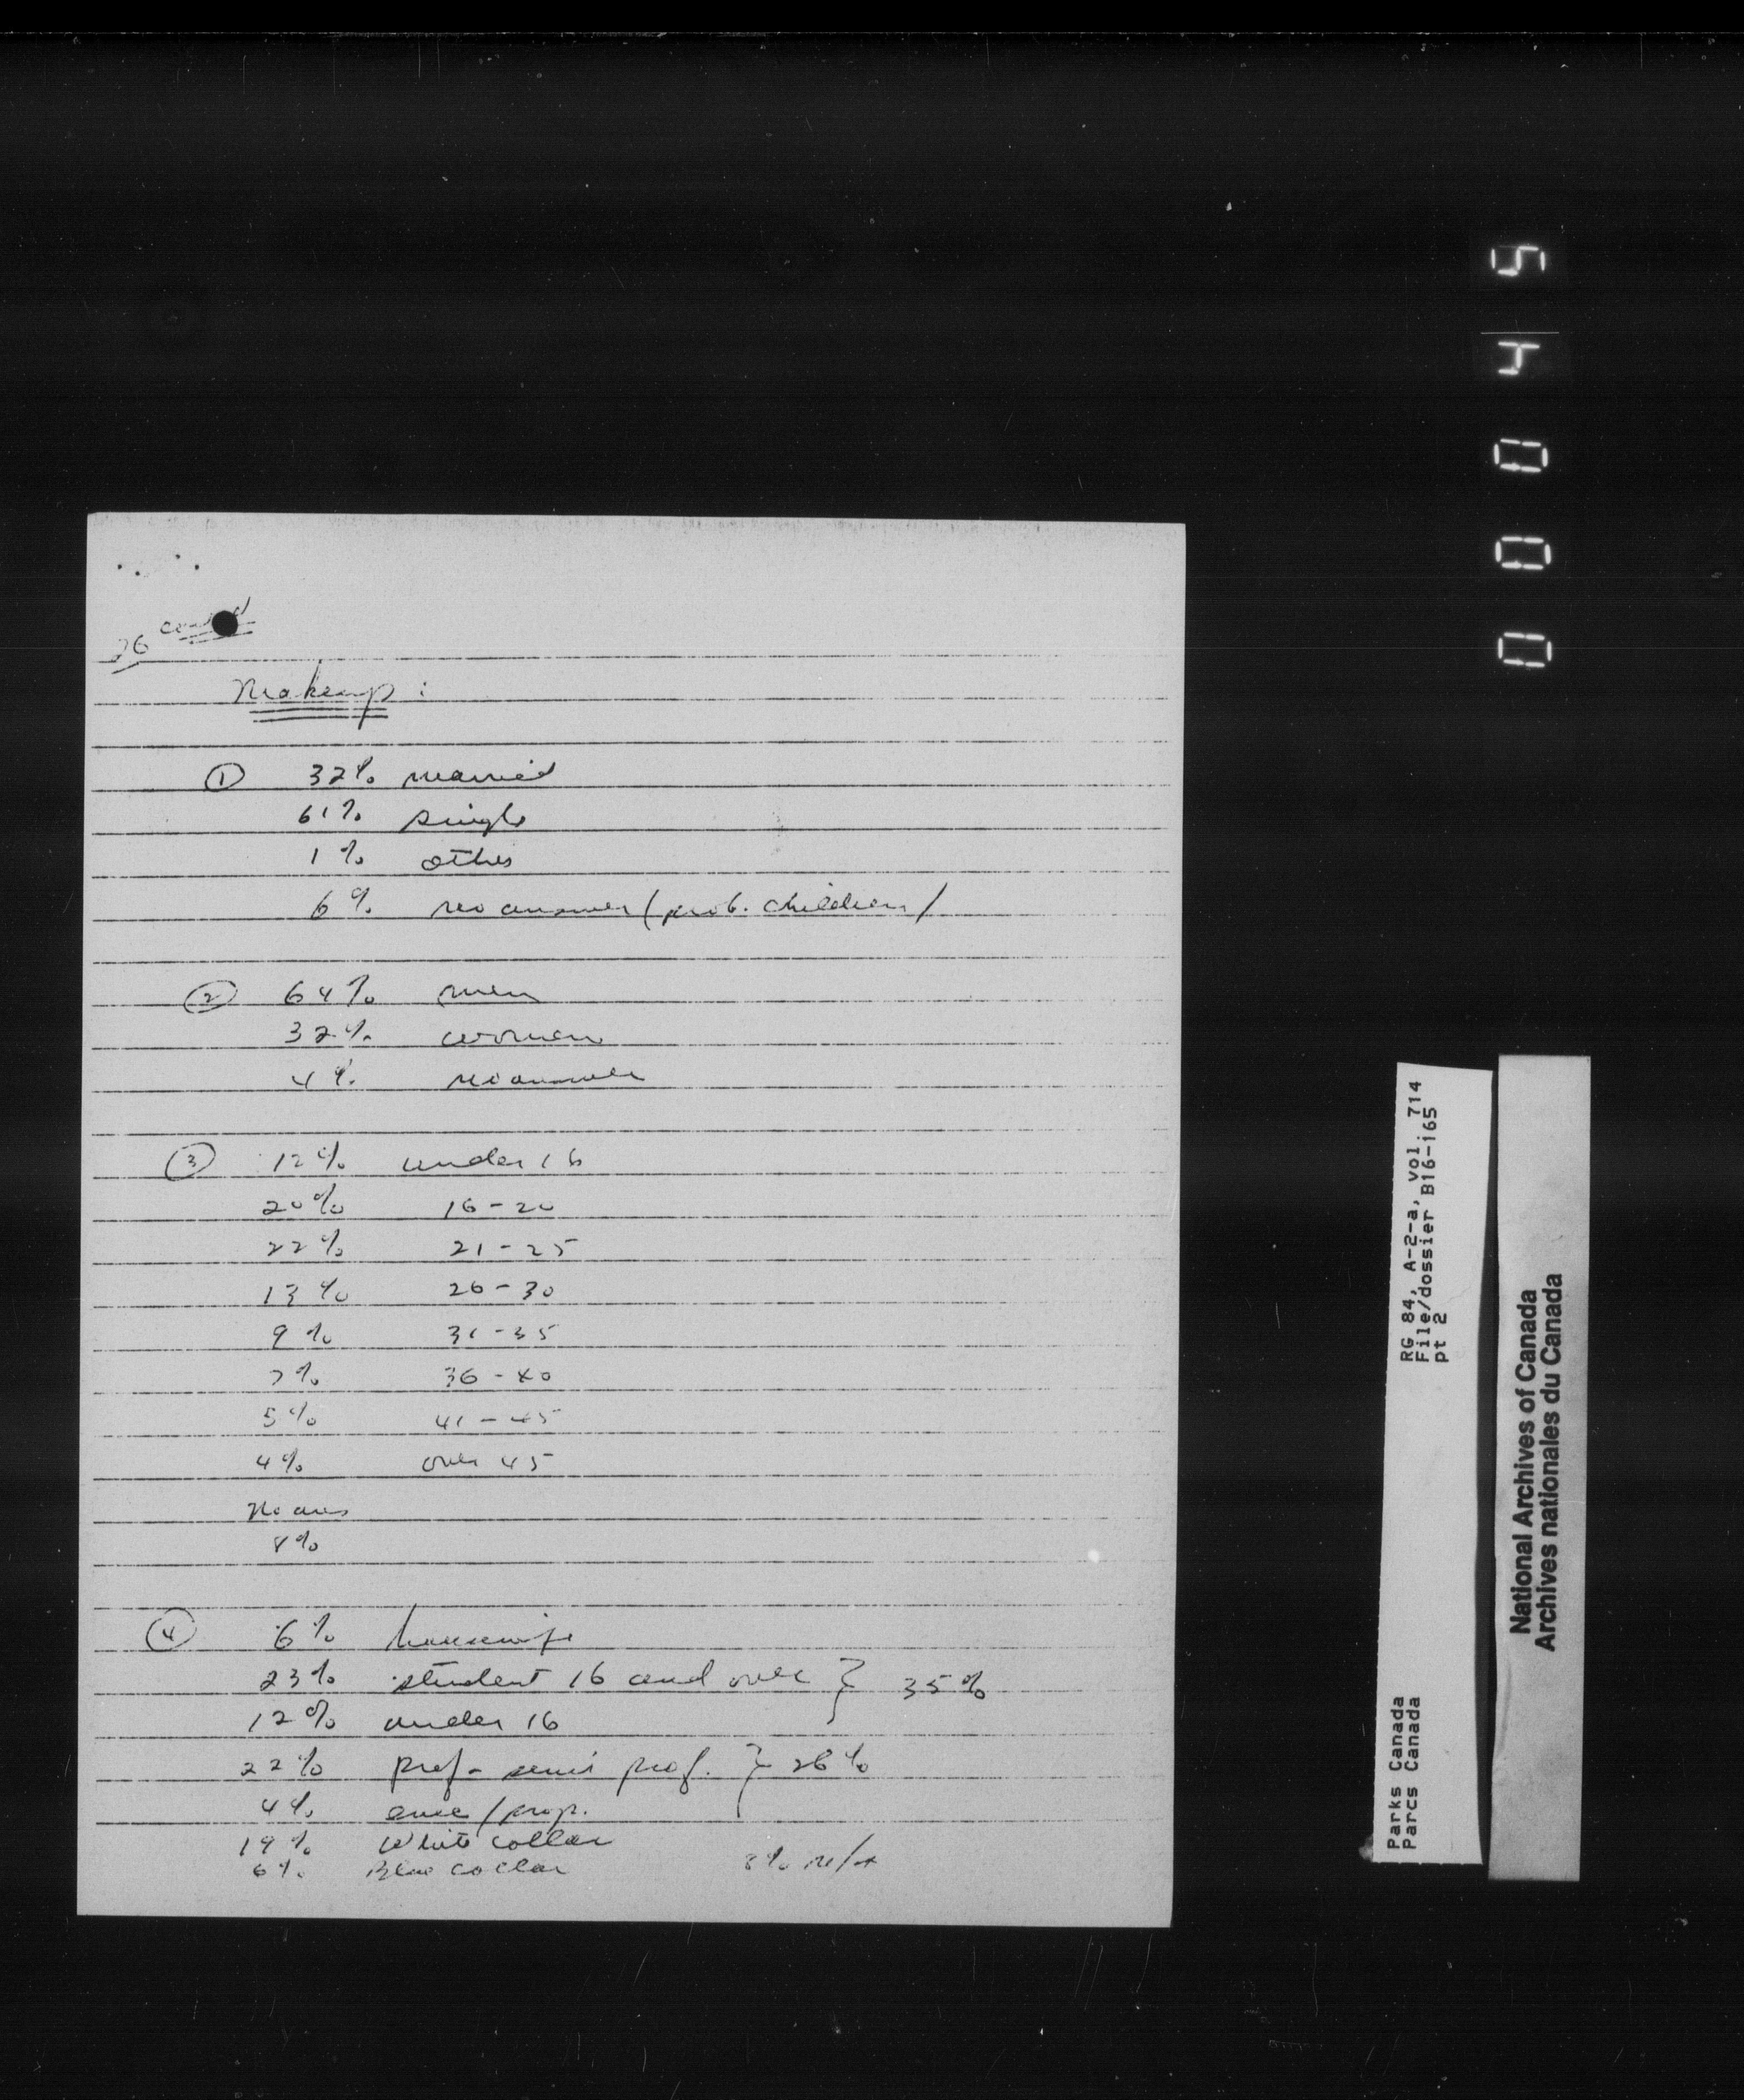 26 cont'd
Makeup :
① 32% married
61% single
1% other
6% no answer (prob. children)
② 64% men
32% women
4% no answer
③ 12% under 16
20% 16-20
22% 21-25
13% 26-30
9% 31-35
7% 36-40
5% 41-45
4% over 45
No ans
8%
④ 6% housewife
23% student 16 and over } 35%
12% under 16
22% prof - semi prof. } 26%
4% exec/prop.
19% White collar
6% Blue collar 8% N/A
00045
RG 84, A-2-a, vol. 714
File/dossier B16-165
pt 2
Parks Canada
Parcs Canada
National Archives of Canada
Archives nationales du Canada